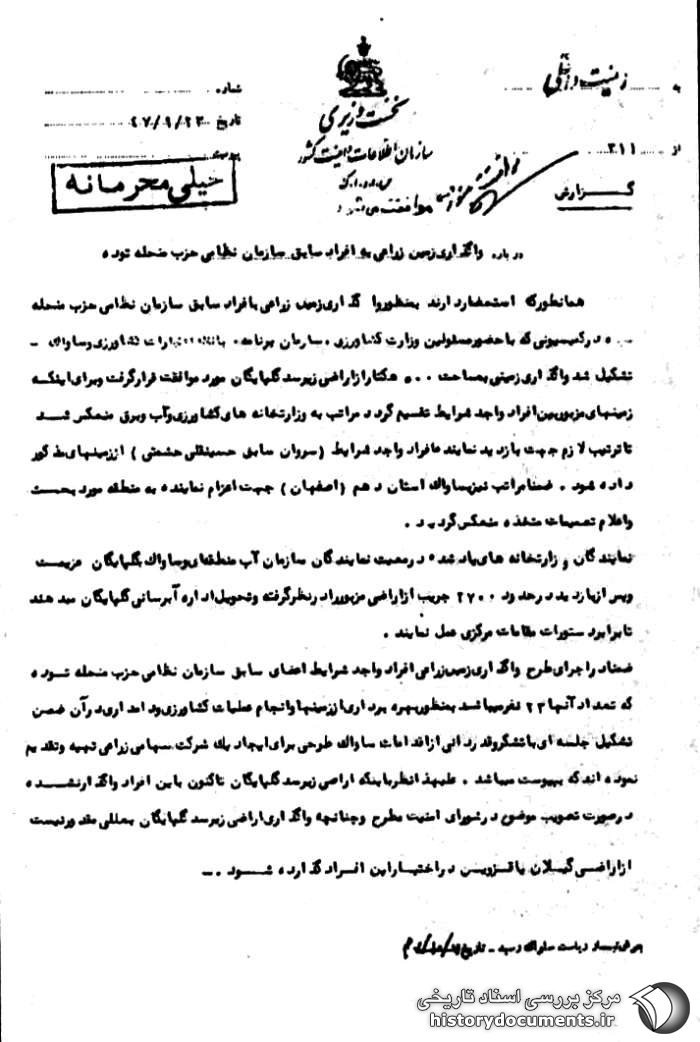 به
شماره
نخست وزیری
از ۳۱۱
تاریخ ۴۷/۹/۲۳
سازمان اطلاعات و امنیت کشور
پیوست
س.ا.و.ا.ک
گزارش
خیلی محرمانه
موافقت میشود
درباره واگذاری زمین زراعی به افراد سابق سازمان نظامی حزب منحله توده
همانطورکه استحضار دارند بمنظور واگذاری زمین زراعی بافراد سابق سازمان نظامی حزب منحله
در کمیسیونی که با حضور مسئولین وزارت کشاورزی، سازمان برنامه، بانک اعتبارات کشاورزی و ساواک -
تشکیل شد واگذاری زمینی بمساحت ۵۰۰ هکتار از اراضی زیر سد گلپایگان مورد موافقت قرار گرفت و برای اینکه
زمینهای مزبور بین افراد واجد شرایط تقسیم گردد مراتب به وزارتخانه های کشاورزی و آب و برق منعکس شد
تا ترتیب لازم جهت بازدید نماینده افراد واجد شرایط (سروان سابق حسینقلی حشمتی) از زمینهای مذکور
داده شود. ضمنا مراتب نیز بساواک استان دهم (اصفهان) جهت اعزام نماینده به منطقه مورد بحث
واعلام تصمیمات متخذه منعکس گردید.
نمایندگان وزارتخانه های یاد شده در معیت نمایندگان سازمان آب منطقه‌ای و ساواک بگلپایگان عزیمت
وپس از بازدید در حدود ۲۷۰۰ جریب از اراضی مزبور را در نظر گرفته و تحویل اداره آبرسانی گلپایگان میدهند
تا برابر دستورات مقامات مرکزی عمل نمایند.
ضمنا در اجرای طرح واگذاری زمین زراعی افراد واجد شرایط اعضای سابق سازمان نظامی حزب منحله توده
که تعداد آنها ۲۳ نفر میباشد بمنظور بهره برداری از زمینها و انجام عملیات کشاورزی و دامداری در آن ضمن
تشکیل جلسه ای با تشکر و قدردانی از اقدامات ساواک طرحی برای ایجاد یک شرکت سهامی زراعی تهیه و تقدیم
نموده اند که بپیوست میباشد. علیهذا نظر باینکه اراضی زیر سد گلپایگان تاکنون باین افراد واگذار نشده
در صورت تصویب موضوع در شورای امنیت مطرح و چنانچه واگذاری اراضی زیر سد گلپایگان بعللی مقدور نیست
از اراضی گیلان یا قزوین در اختیار این افراد گذارده شود.-
ریاست ساواک رسید - تاریخ
مرکز بررسی اسناد تاریخی
historydocuments.ir